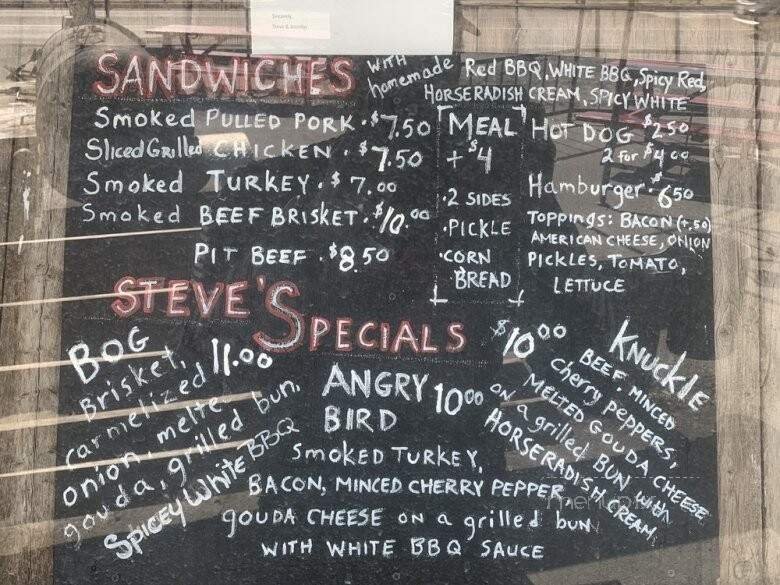 Sincerely,
SANDWICHES
with homemade Red BBQ, WHITE BBQ, Spicy Red,
HORSERADISH CREAM, SPICY WHITE
Smoked PULLED PORK. $7.50
Sliced Grilled CHICKEN. $7.50
Smoked TURKEY. $7.00
Smoked BEEF BRISKET. $10.00
PIT BEEF. $8.50
MEAL
+ $4
.2 SIDES
.PICKLE
.CORN
BREAD
HOT DOG $2.50
2 For $4.00
Hamburger. $6.50
TOPPINGS: BACON (+.50)
AMERICAN CHEESE, ONION
PICKLES, TOMATO,
LETTUCE
STEVE'S SPECIALS
BOG 11.00
Brisket,
carmelized
onion, melted
gouda, grilled bun,
Spicey White BBQ
ANGRY 10.00
BIRD
SMOKED TURKEY,
BACON, MINCED CHERRY PEPPER
GOUDA CHEESE on a grilled bun
WITH WHITE BBQ SAUCE
$10.00 KNUCKLE
BEEF, MINCED
cherry peppers,
MELTED GOUDA CHEESE
ON a grilled BUN with
HORSERADISH CREAM